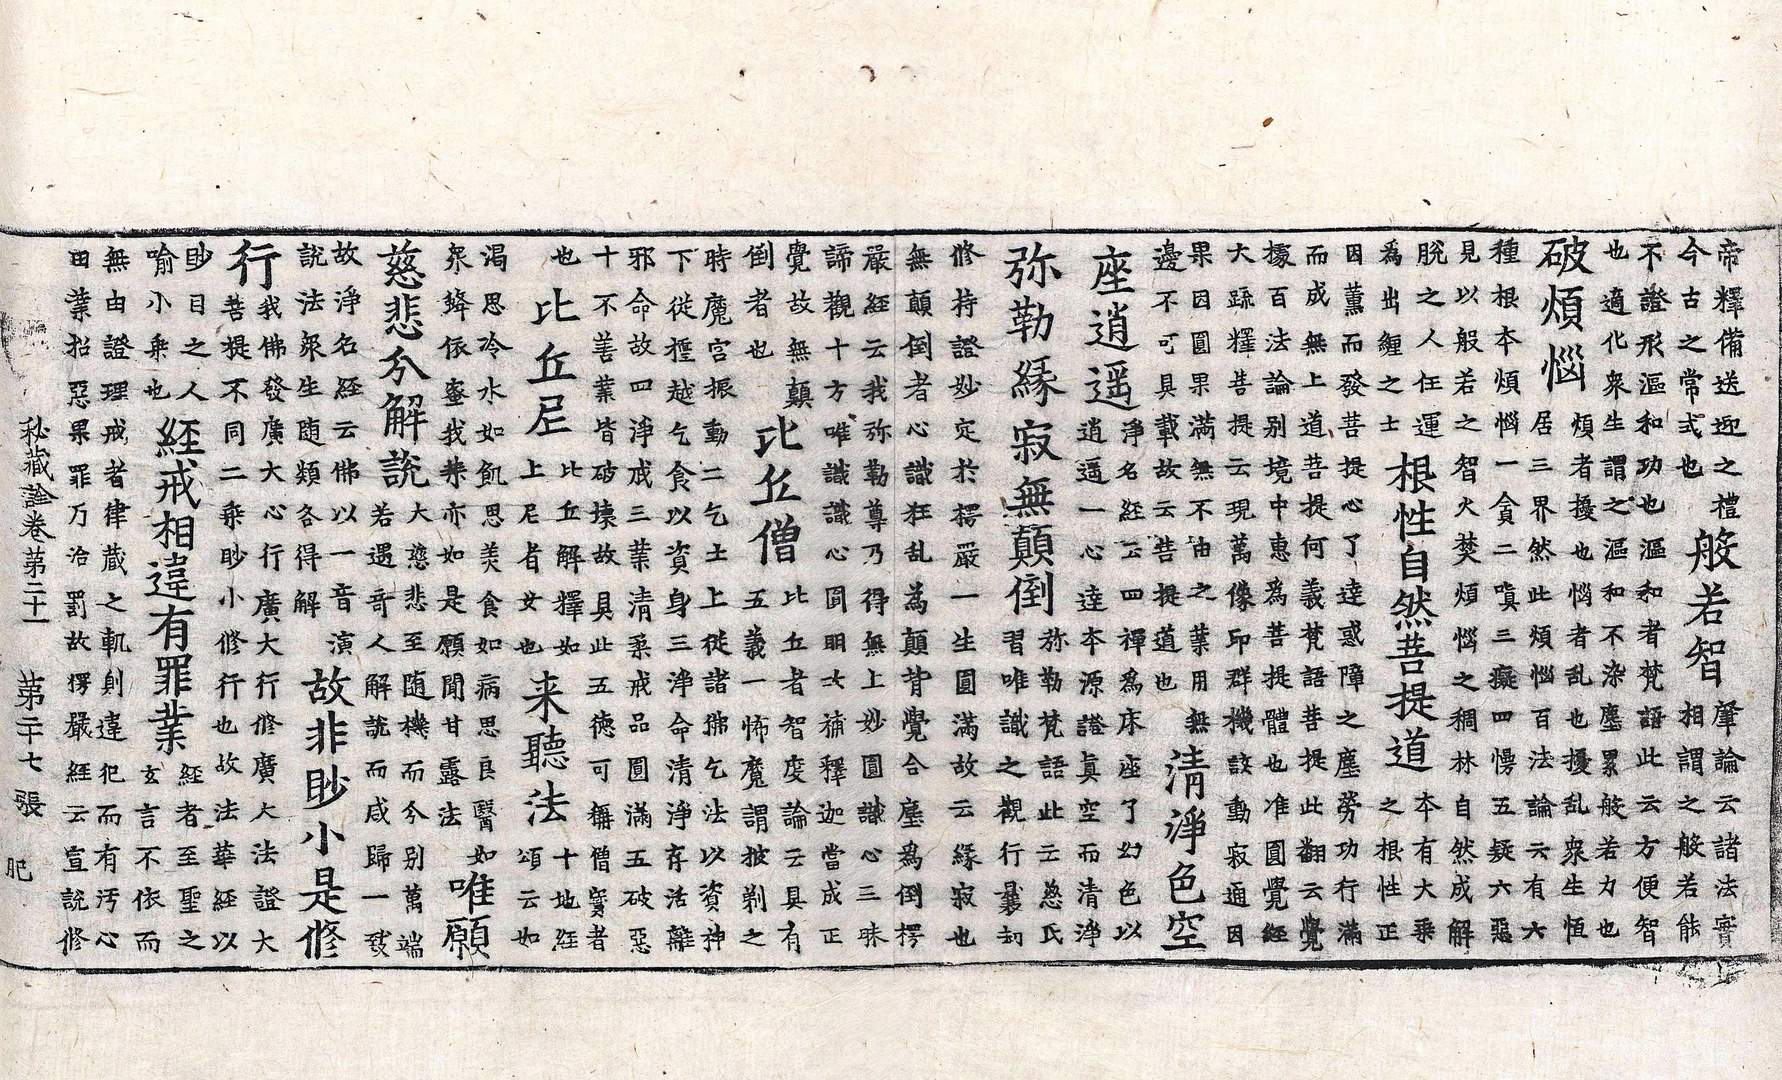 帝釋備送迎之禮
今古之常式也
般若智
肇論云諸法實
相謂之般若能
不證形漚和功也漚和者梵語此云方便智
也適化衆生謂之漚和不染塵累般若力也
破煩惱
煩者擾也惱者乱也擾乱衆生恒
居三界然此煩惱百法論云有六
種根本煩惱一貪二嗔三癡四慢五疑六惡
見以般若之智火焚煩惱之稠林自然成解
脫之人任運
為出纏之士
根性自然菩提道
本有大乘
之根性正
因薰而發菩提心了達惑障之塵勞功行滿
而成無上道菩提何義梵語菩提此翻云覺
據百法論別境中惠為菩提體也准圓覺經
大疏釋菩提云現萬像印群機該動寂通因
果因圓果滿無不由之葉用無
邊不可具載故云菩提道也
清淨色空
座逍遥
淨名經云四禪為床座了幻色以
逍遥一心達本源證真空而清淨
弥勒緣寂無顛倒
弥勒梵語此云慈氏
習唯識之觀行曩劫
修持證妙定於楞嚴一生圓滿故云緣寂也
無顛倒者心識狂乱為顛背覺合塵為倒楞
嚴經云我弥勒尊乃得無上妙圓識心三昧
諦觀十方唯識識心圓明次補釋迦當成正
覺故無顛
倒者也
比丘僧
比丘者智度論云具有
五義一怖魔謂披剃之
時魔宮振動二乞士上從諸佛乞法以資神
下從檀越乞食以資身三淨命清淨存活離
邪命故四淨戒三業清柔戒品圓滿五破惡
十不善業皆破壞故具此五德可稱僧寶者
也
比丘尼
比丘解擇如
上尼者女也
来聽法
十地經
頌云如
渴思冷水如飢思美食如病思良醫如
衆蜂依蜜我等亦如是願聞甘露法
唯願
慈悲分解說
大慈悲至随機而今別萬端
若遇奇人解說而咸歸一致
故淨名經云佛以一音演
說法衆生随類各得解
故非眇小是修
行
我佛發廣大心行廣大行修廣大法證大
菩提不同二乘眇小修行也故法華經以
眇目之人
喻小乘也
經戒相違有罪業
經者至聖之
玄言不依而
無由證理戒者律蔵之軌則違犯而有汚心
田業招惡果罪乃治罰故楞嚴經云宣說修
秘藏詮卷第二十一　第二十七張　肥